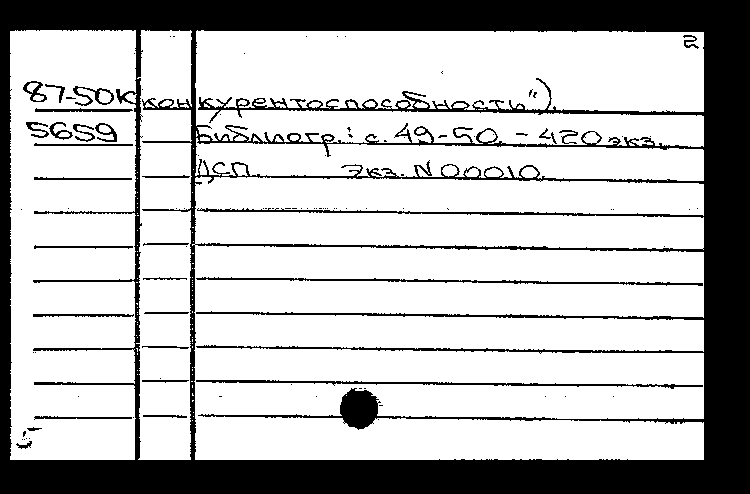 2
87-50К конкурентоспособность").
5659 Библиогр.: с. 49-50. - 420 экз.
ДСП. Экз. N 00010.
5